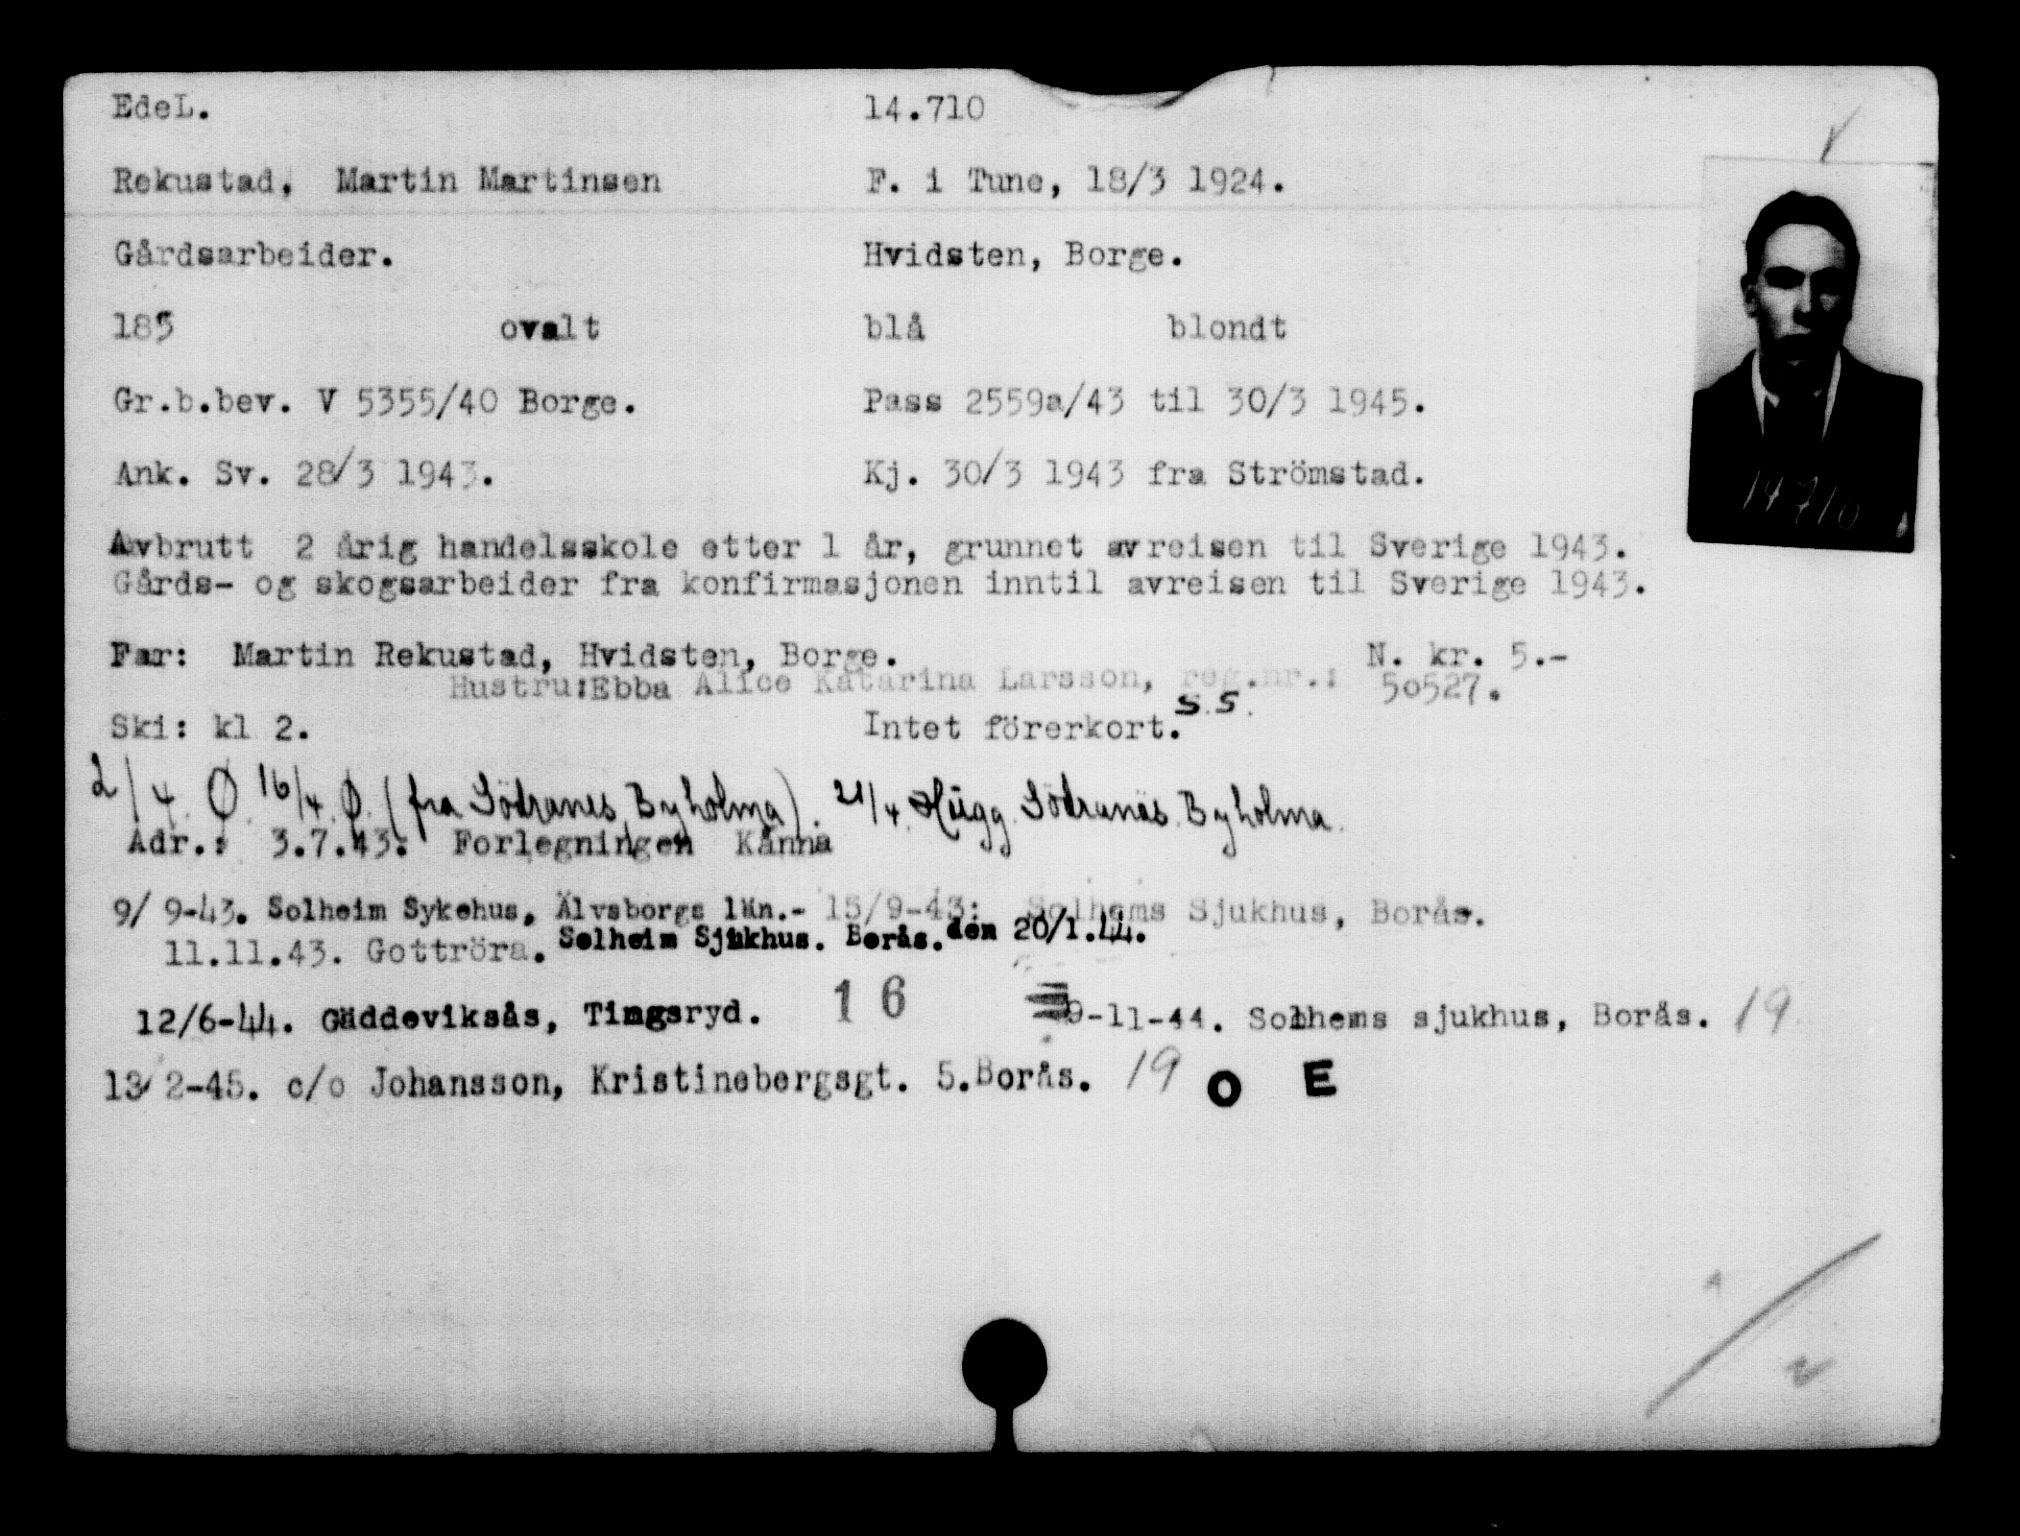 EdeL. 14.710
Rekustad, Martin Martinsen F. i Tune, 18/3 1924.
Gårdsarbeider. Hvidsten, Borge.
185 ovalt blå blondt
Gr.b.bev. V 5355/40 Borge. Pass 2559a/43 til 30/3 1945.
Ank. Sv. 28/3 1943. Kj. 30/3 1943 fra Strömstad.
14710
Avbrutt 2 årig handelsskole etter 1 år, grunnet avreisen til Sverige 1943.
Gårds- og skogsarbeider fra konfirmasjonen inntil avreisen til Sverige 1943.
Far: Martin Rekustad, Hvidsten, Borge. N. kr. 5.-
Hustru:Ebba Alice Katarina Larsson, reg.nr.: 50527.
S.S.
Ski: kl 2. Intet förerkort.
2/4. Ø. 16/4. Ø. (fra Södranäs, Byholma). 21/4. Hugg. Södranäs. Byholma.
Adr.: 3.7.43: Forlegningen Kånna
9/ 9-43. Solheim Sykehus, Älvsborgs län.- 15/9-43: Solhems Sjukhus, Borås.
11.11.43. Gottröra. Solheim Sjukhus. Borås. den 20/1.44.
12/6-44. Gäddeviksås, Tingsryd. 16 9-11-44. Solhems sjukhus, Borås. 19
13/2-45. c/o Johansson, Kristinebergsgt. 5.Borås. 19 O E